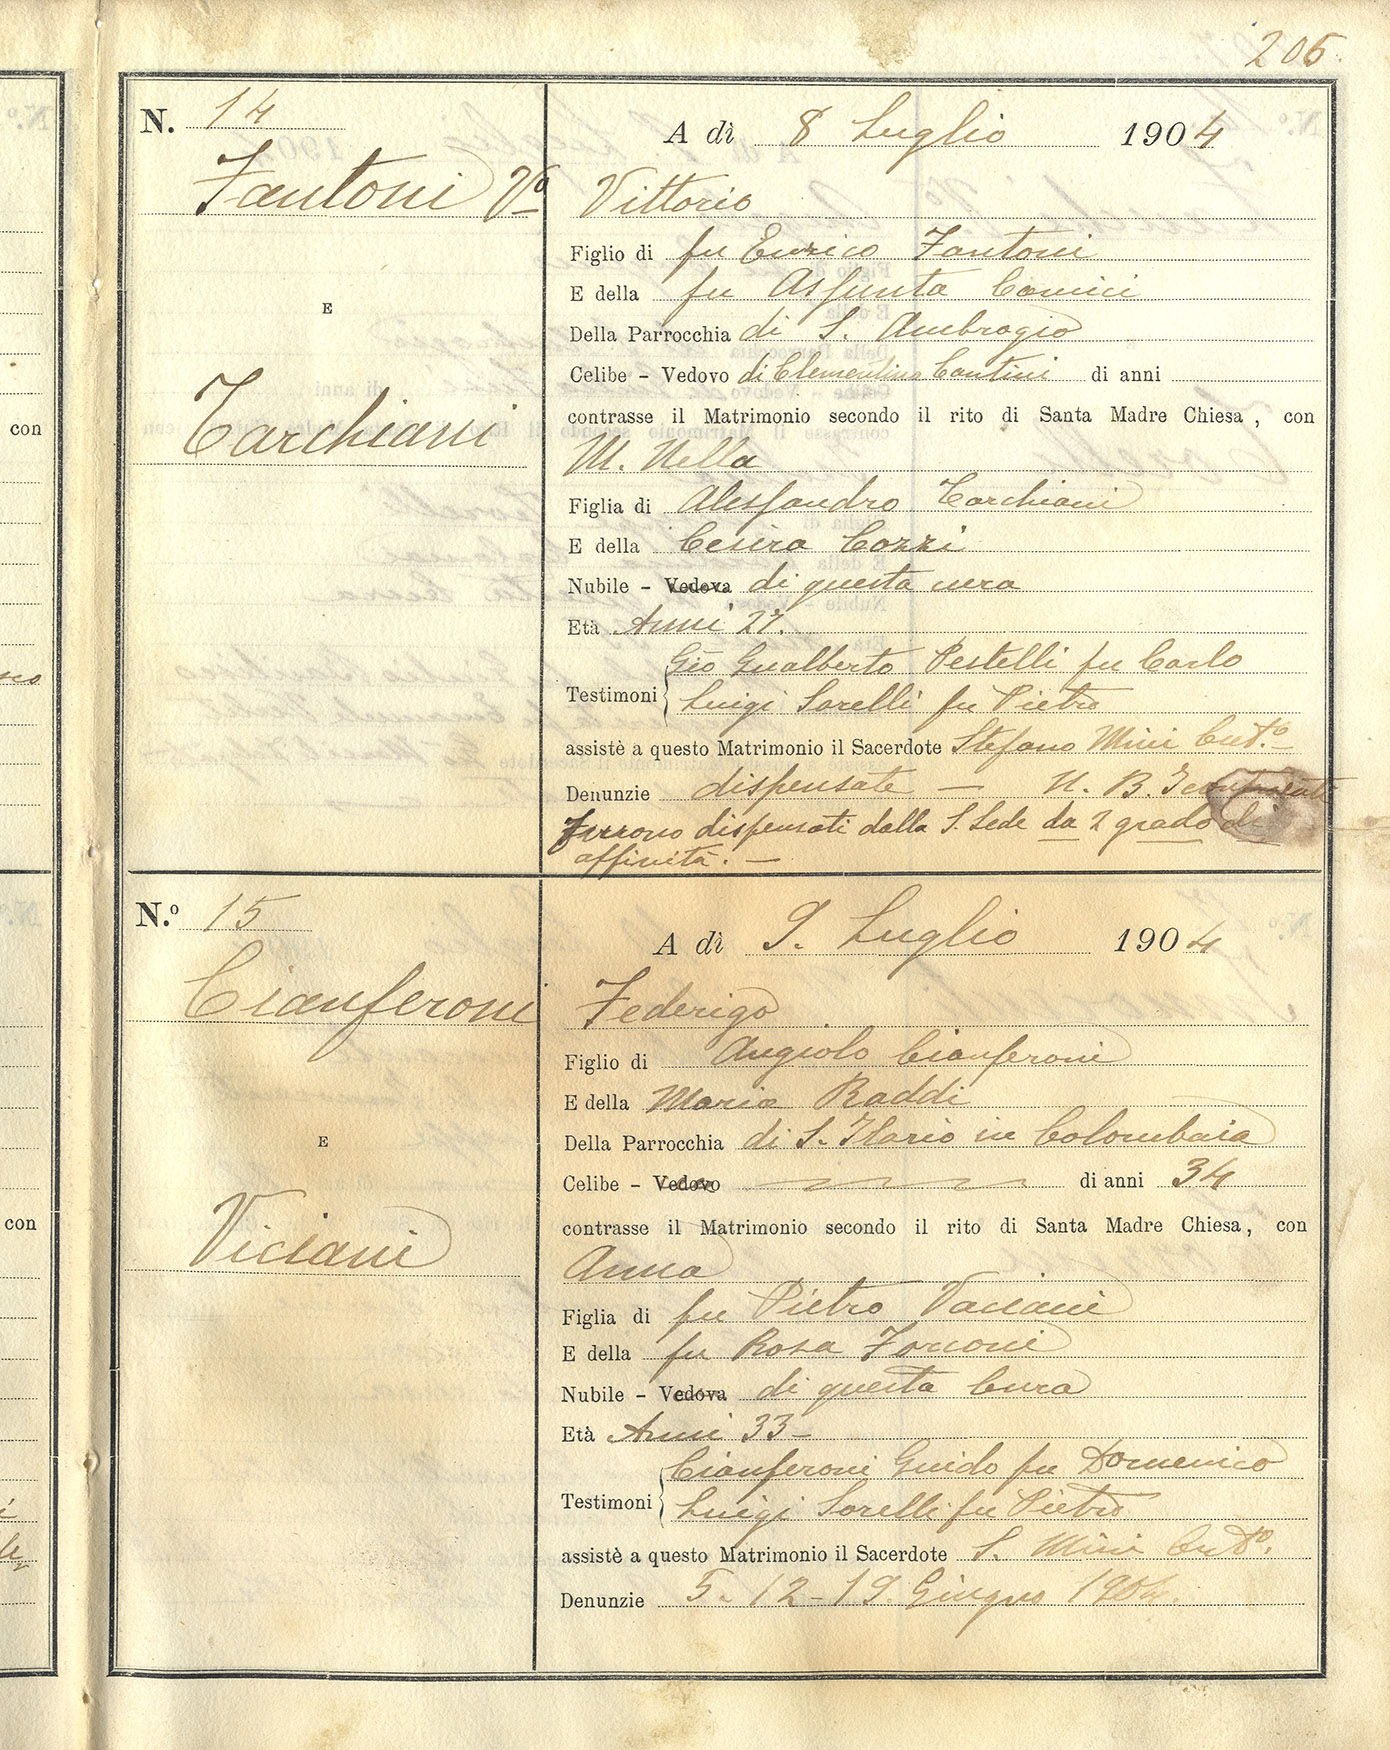 206
N. 14
A dì 8 Luglio 1904
Fantoni Vº
Vittorio
Figlio di fu Enrico Fantoni
E
E della fu Assunta Camici
Della Parrocchia di S. Ambrogio
Celibe - Vedovo di Clementina Cantini di anni
Tarchiani
contrasse il Matrimonio secondo il rito di Santa Madre Chiesa, con
M. Nella
Figlia di Alessandro Tarchiani
E della Cesira Cozzi
Nubile - Vedova di questa cura
Età Anni 27.
Gio Gualberto Pestelli fu Carlo
Testimoni
Luigi Sorelli fu Pietro
assistè a questo Matrimonio il Sacerdote Stefano Mini Cutº
Denunzie dispensate — N. B.
Furono dispensati dalla S. Sede da 2 grado di
affinità. —
N.º 15
A dì 9. Luglio 1904
Cianferoni
Federigo
Figlio di Angiolo Cianferoni
E della Maria Raddi
E
Della Parrocchia di S. Ilario in Colombaia
Celibe - Vedovo di anni 34
Viciani
contrasse il Matrimonio secondo il rito di Santa Madre Chiesa, con
Anna
Figlia di fu Pietro Vaciani
E della fu Rosa Forconi
Nubile - Vedova di questa Cura
Età Anni 33 –
Cianferoni Guido fu Domenico
Testimoni
Luigi Sorelli fu Pietro
assistè a questo Matrimonio il Sacerdote S. Mini Cutº.
Denunzie 5. 12 - 19. Giugno 1904.
con
con